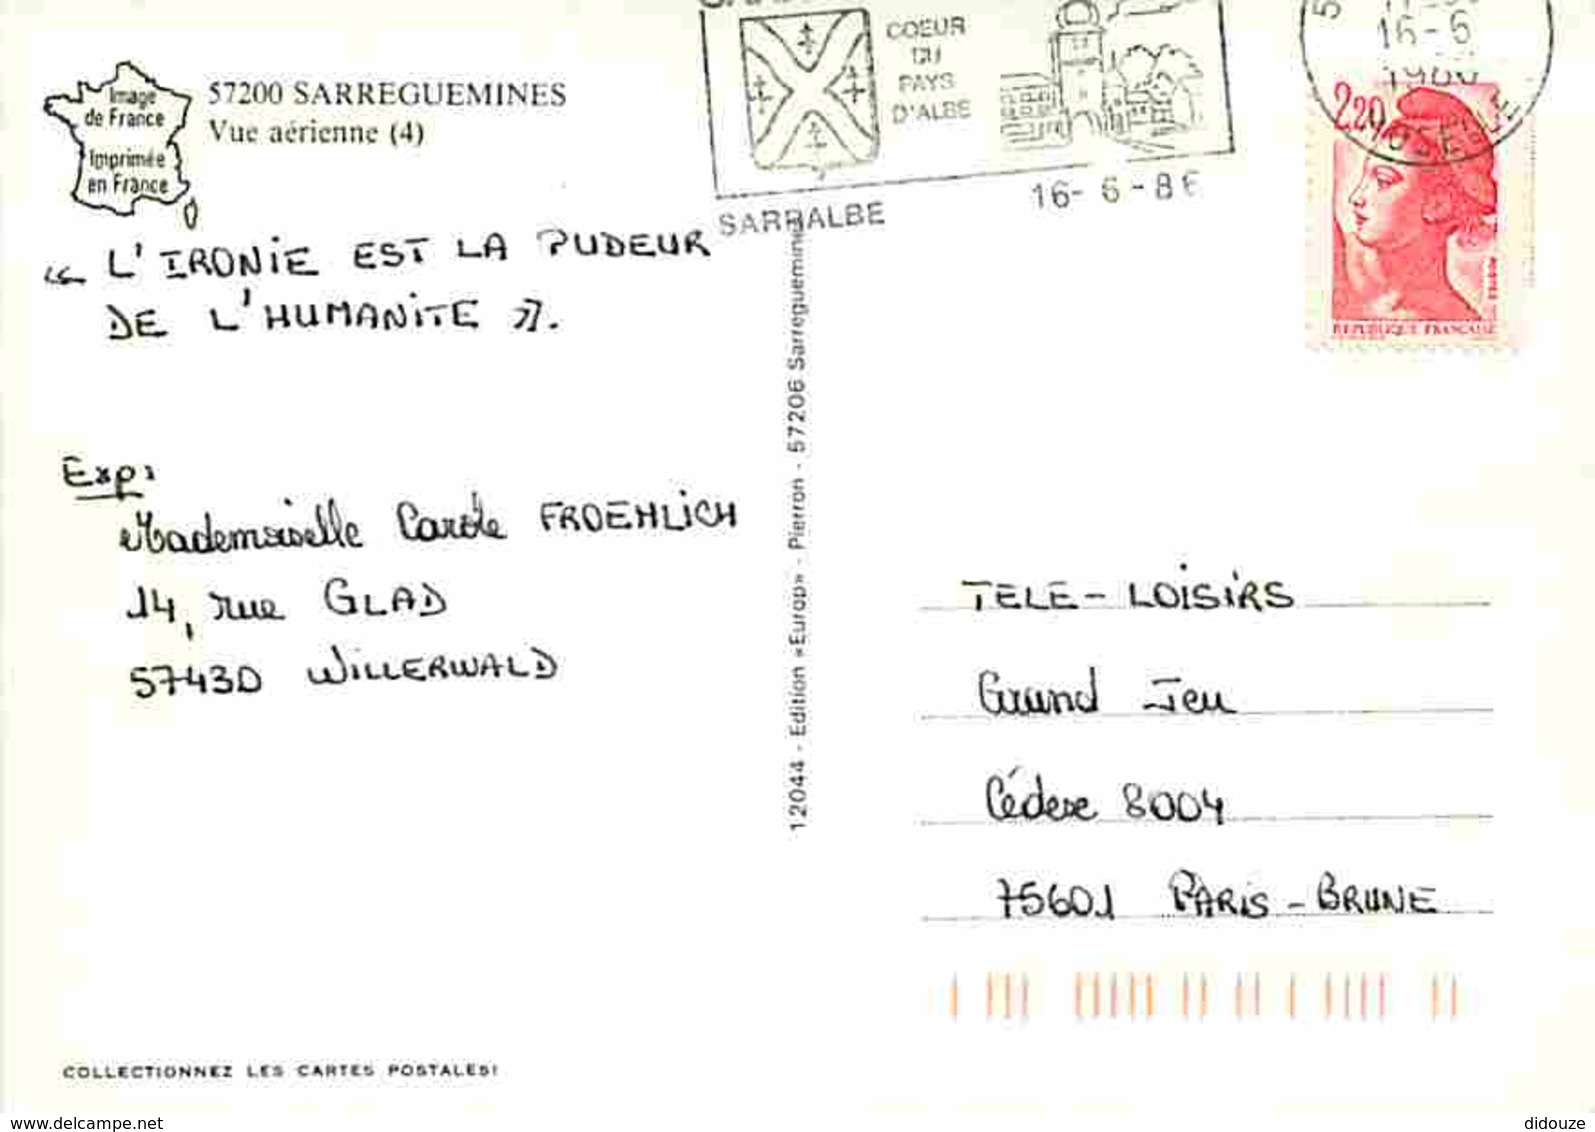 Image
de France
Imprimée
en France
57200 SARREGUEMINES
Vue aérienne (4)
COEUR
DU
PAYS
D'ALBE
SARRALBE
16-6-86
16-6
1986
MOSELLE
2,20
REPUBLIQUE FRANÇAISE
« L'IRONIE EST LA PUDEUR
DE L'HUMANITE ».
Exp:
Mademoiselle Carole FROEHLICH
14, rue GLAD
57430 WILLERWALD
12044 - Edition «Europ» - Pierron - 57206 Sarreguemines
TELE-LOISIRS
Grand Jeu
Cédex 8004
75601 PARIS-BRUNE
COLLECTIONNEZ LES CARTES POSTALES!
www.delcampe.net
didouze